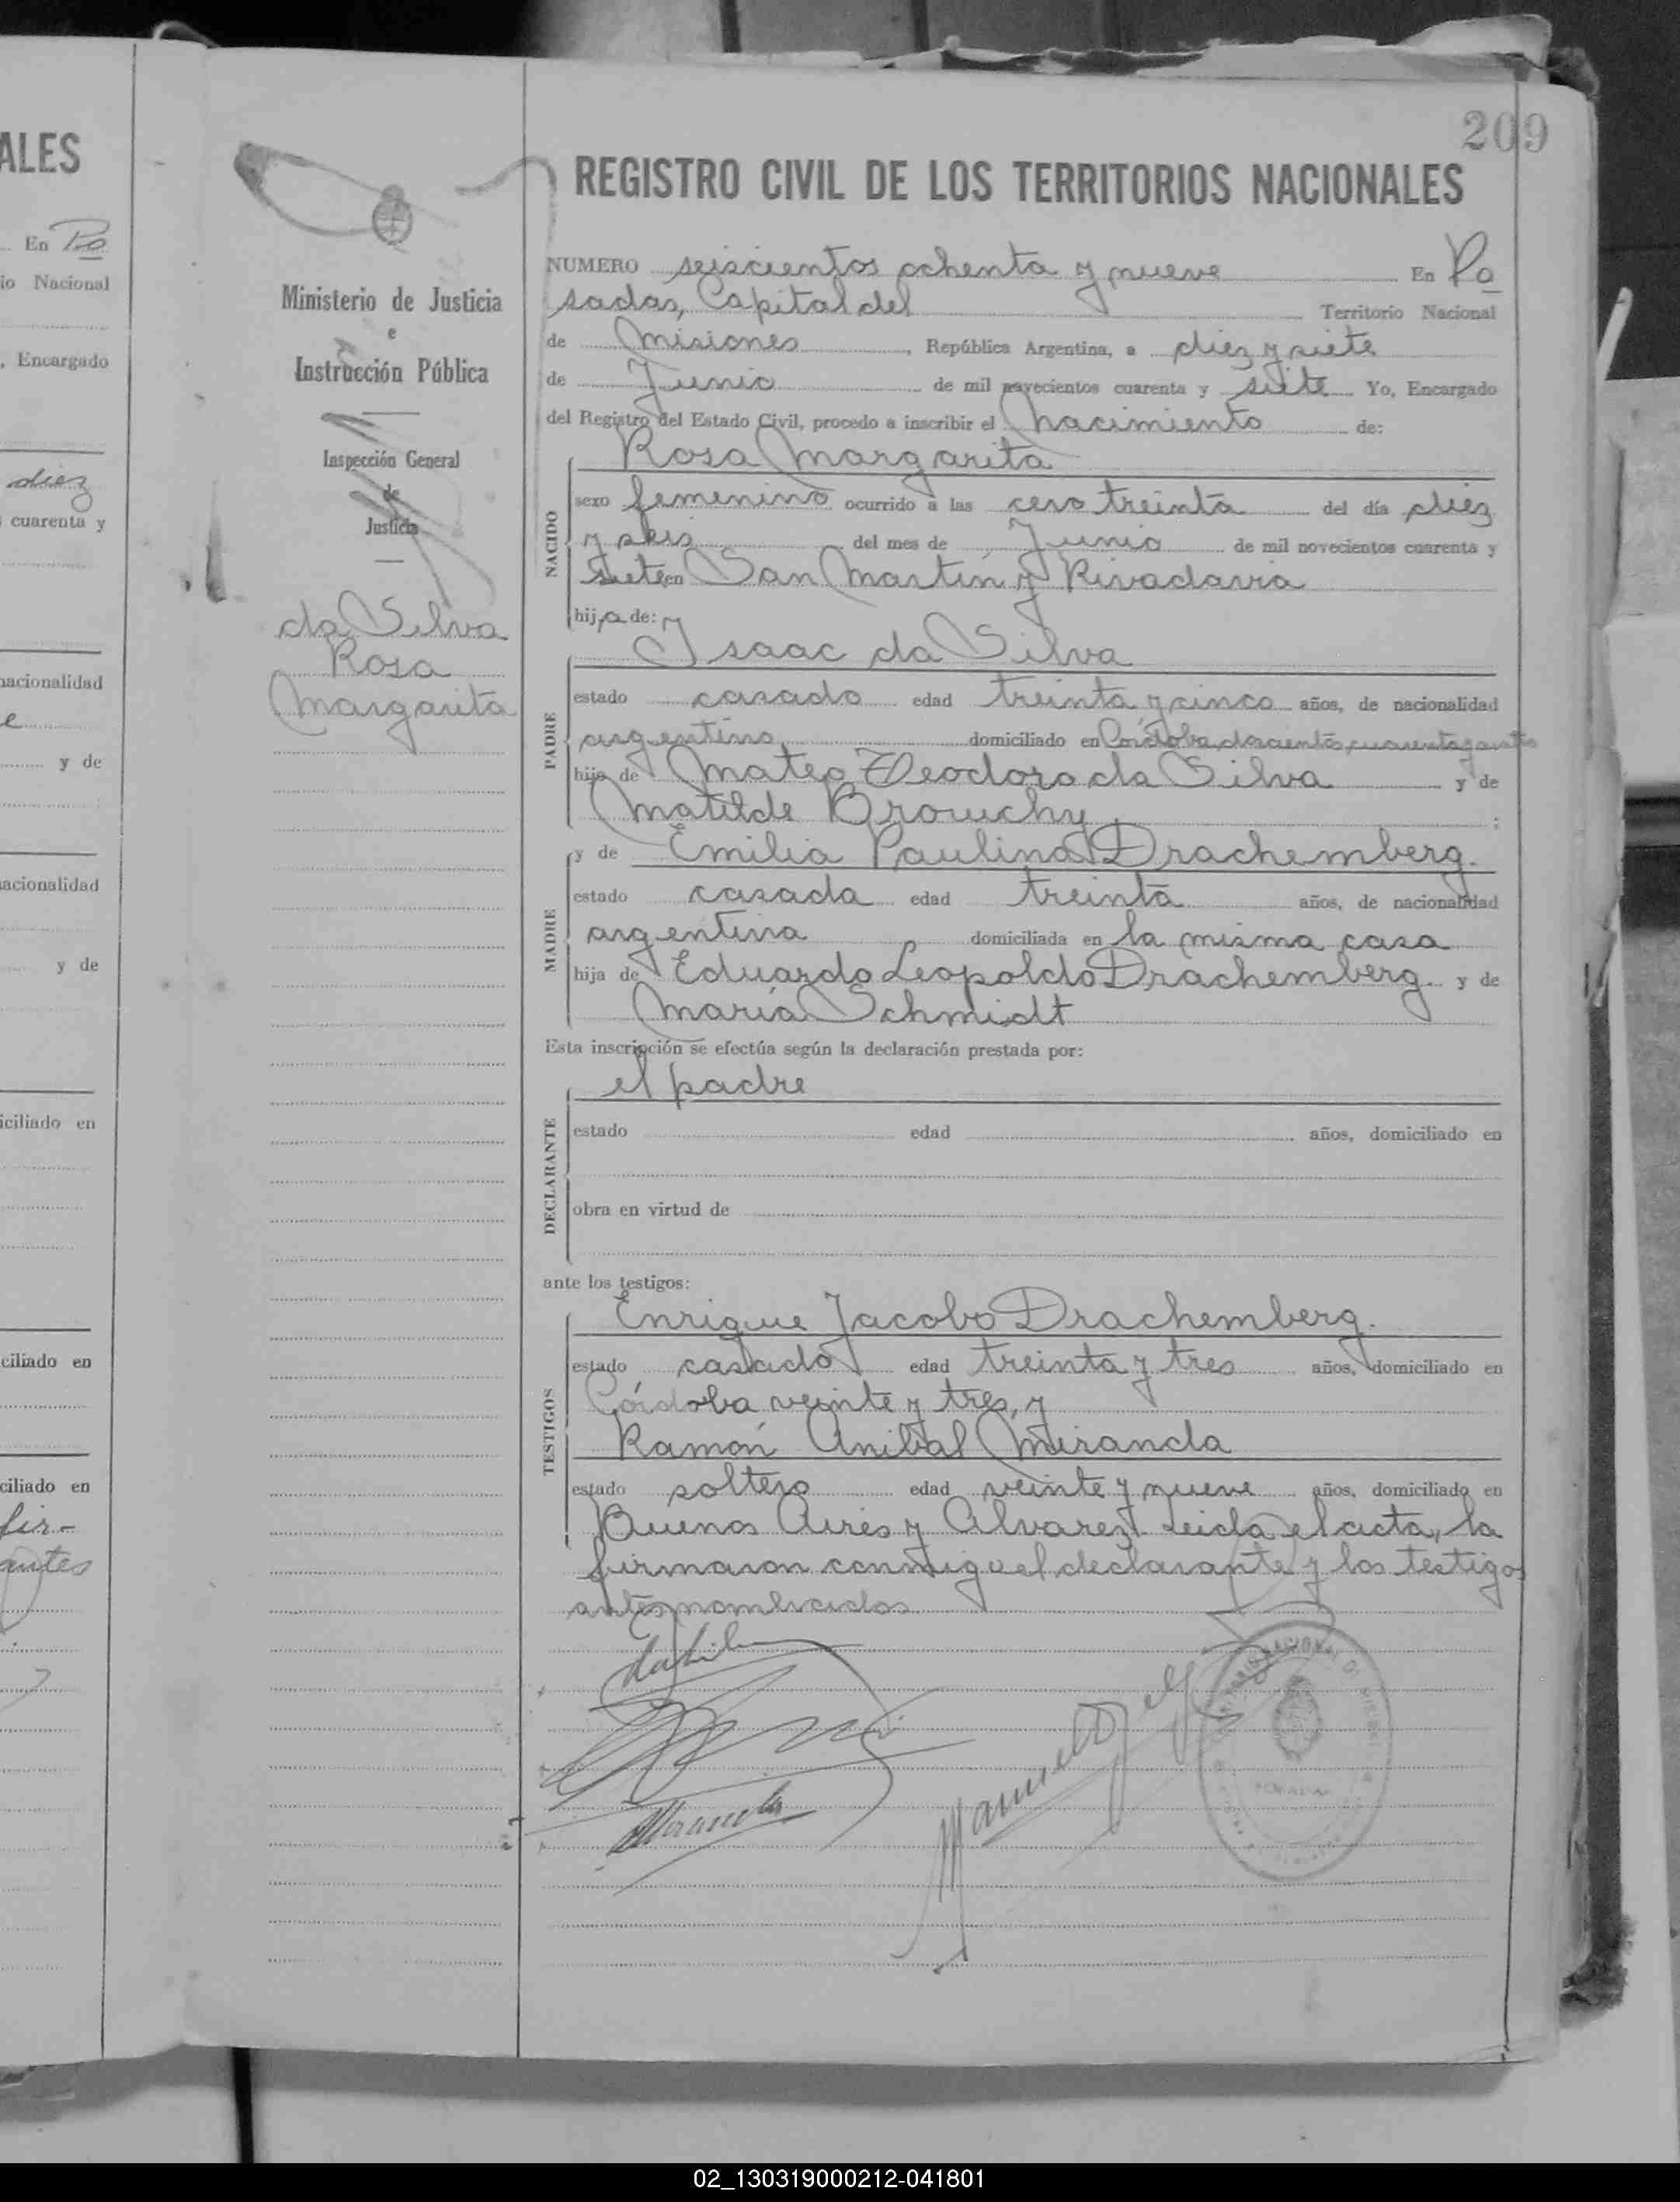 ALES
En Po
io Nacional
, Encargado
diez
cuarenta y
nacionalidad
e
y de
nacionalidad
y de
iciliado en
ciliado en
ciliado en
fir-
antes
Ministerio de Justicia
e
Instrucción Pública
Inspección General
de
Justicia
da Silva
Rosa
Margarita
209
REGISTRO CIVIL DE LOS TERRITORIOS NACIONALES
NUMERO seiscientos ochenta y nueve En Po
sadas, Capital del Territorio Nacional
de Misiones, República Argentina, a diez y siete
de Junio de mil novecientos cuarenta y siete Yo, Encargado
del Registro del Estado Civil, procedo a inscribir el nacimiento de:
Rosa Margarita
NACIDO
sexo femenino ocurrido a las cero treinta del día diez
y seis del mes de Junio de mil novecientos cuarenta y
siete en San Martín y Rivadavia
hija de:
Isaac da Silva
PADRE
estado casado edad treinta y cinco años, de nacionalidad
argentino domiciliado en Córdoba doscientos cuarenta y
hijo de Mateo Teodoro da Silva y de
Matilde Browchy ;
y de Emilia Paulina Drachemberg.
MADRE
estado casada edad treinta años, de nacionalidad
argentina domiciliada en la misma casa
hija de Eduardo Leopoldo Drachemberg y de
María Schmidt
Esta inscripción se efectúa según la declaración prestada por:
el padre
DECLARANTE
estado edad años, domiciliado en
obra en virtud de
ante los testigos:
Enrique Jacobo Drachemberg.
TESTIGOS
estado casado edad treinta y tres años, domiciliado en
Córdoba veinte y tres, y
Ramón Anibal Miranda
estado soltero edad veinte y nueve años, domiciliado en
Buenos Aires y Alvarez. Leida el acta, la
firmaron conmigo el declarante y los testigos
antes nombrados
daSilva
Miranda
Manuel
02_130319000212-041801